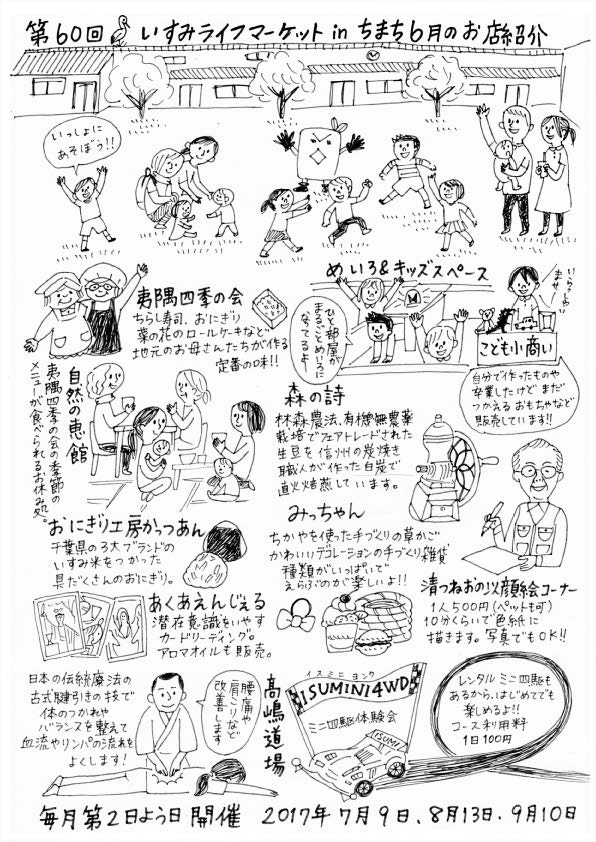 第60回 いすみライフマーケット in ちまち 6月のお店紹介
いっしょに
あそぼう!!
めいろ&キッズスペース
いらっしゃい
ませ
ひと部屋が
まるごとめいろに
なってるよー
こども小商い
自分で作ったものや
卒業したけどまだ
つかえるおもちゃなど
販売しています!!
夷隅四季の会
ちらし寿司、おにぎり
菜の花のロールケーキなど、
地元のお母さんたちが作る
定番の味!!
自然の恵館
夷隅四季の会の季節の
メニューが食べられるお休み処。
森の詩
林森農法、有機無農薬
栽培でフェアトレードされた
生豆を信州の炭焼き
職人が作った白炭で
直火焙煎しています。
おにぎり工房かっつあん
千葉県の3大ブランドの
いすみ米をつかった
具だくさんのおにぎり。
みっちゃん
ちかやを使った手づくりの草かご
かわいいデコレーションの手づくり雑貨
種類がいっぱいで
えらぶのが楽しいよ!!
清つねおの似顔絵コーナー
1人500円(ペットも可)
10分くらいで色紙に
描きます。写真でもOK!!
あくあえんじぇる
潜在意識をいやす
カードリーディング。
アロマオイルも販売。
日本の伝統療法の
古式腱引きの技で
体のつかれや
バランスを整えて
血流やリンパの流れを
よくします!
腰痛や
肩こりなど
改善します
髙嶋道場
イスミニ ヨンク
ISUMINI4WD
ミニ四駆体験会
ISUMI
レンタルミニ四駆も
あるから、はじめてでも
楽しめるよ!!
コース利用料
1日100円
毎月第2日よう日開催 2017年7月9日、8月13日、9月10日